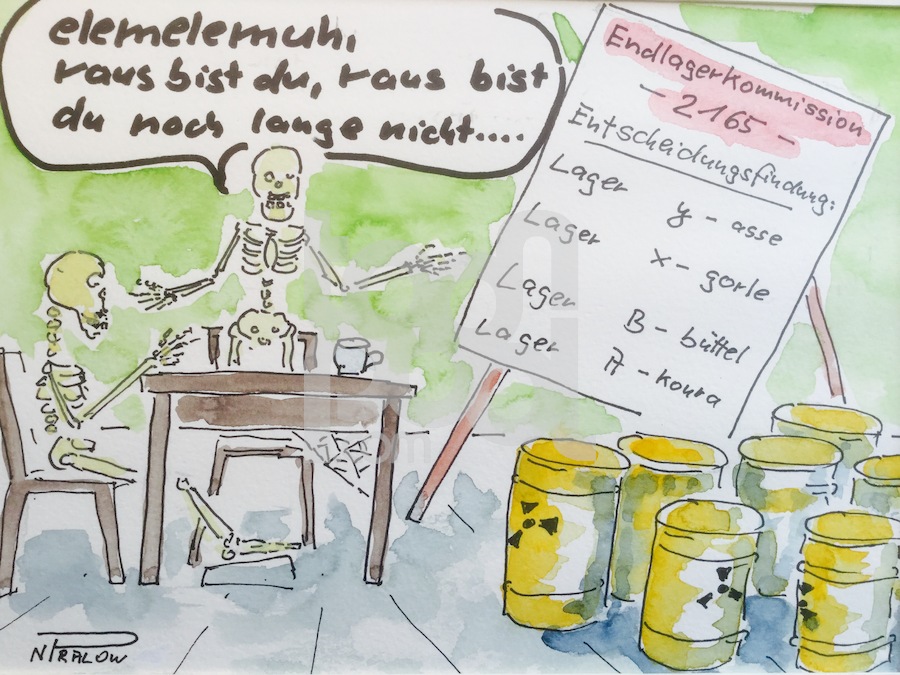 elemelemuh,
raus bist du, raus bist
du noch lange nicht....
Endlagerkommission
- 2165 -
Entscheidungsfindung:
Lager y - asse
Lager x - gorle
Lager B - büttel
Lager A - koura